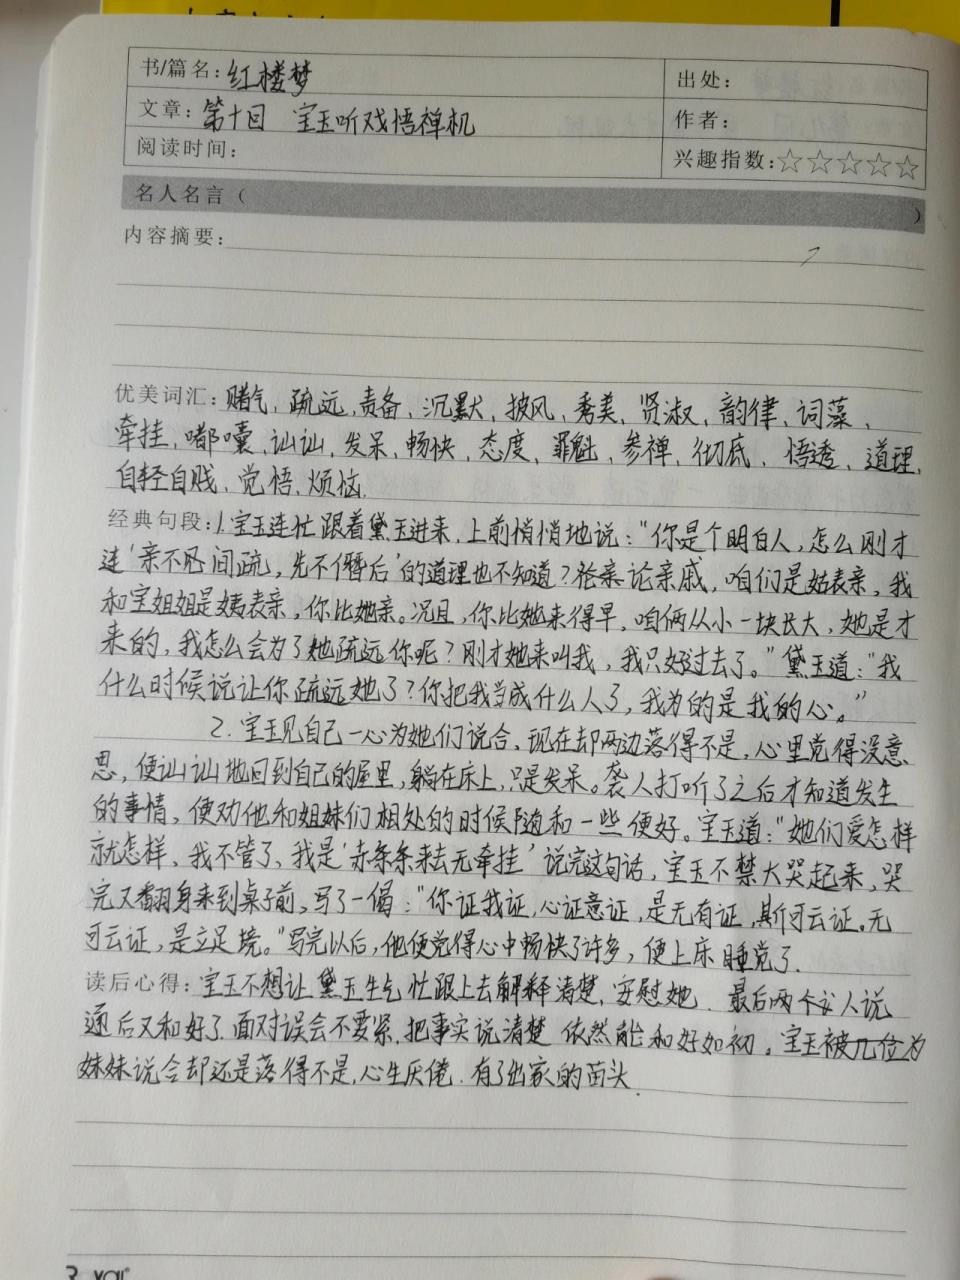 书/篇名：红楼梦 出处：
文章：第十回 宝玉听戏悟禅机 作者：
阅读时间： 兴趣指数：☆☆☆☆☆
名人名言（ ）
内容摘要：
优美词汇：赌气、疏远、责备、沉默、披风、秀美、贤淑、韵律、词藻、
牵挂、嘟囔、讪讪、发呆、畅快、态度、罪魁、参禅、彻底、悟透、道理、
自轻自贱、觉悟、烦恼.
经典句段：1.宝玉连忙跟着黛玉进来，上前悄悄地说："你是个明白人，怎么刚才
连'亲不 间疏，先不僭后'的道理也不知道？论亲戚，咱们是姑表亲，我
和宝姐姐是姨表亲，你比她亲。况且，你比她来得早，咱俩从小一块长大，她是才
来的，我怎么会为了她疏远你呢？刚才她来叫我，我只好过去了。"黛玉道："我
什么时候说让你疏远她了？你把我当成什么人了，我为的是我的心。"
2.宝玉见自己一心为她们说合，现在却两边落得不是，心里觉得没意
思，便讪讪地回到自己的屋里，躺在床上，只是发呆。袭人打听了之后才知道发生
的事情，便劝他和姐妹们相处的时候随和一些便好。宝玉道："她们爱怎样
就怎样，我不管了，我是'赤条条来去无牵挂'说完这句话，宝玉不禁大哭起来，哭
完又翻身来到桌子前，写了一偈："你证我证，心证意证，是无有证，斯可云证。无
可云证，是立足境。"写完以后，他便觉得心中畅快了许多，便上床睡觉了.
读后心得：宝玉不想让黛玉生气忙跟上去解释清楚，安慰她.最后两个 人说
通后又和好了.面对误会不要紧.把事实说清楚 依然能和好如初。宝玉被几位为
妹妹说合却还是落得不是，心生厌倦.有了出家的苗头.